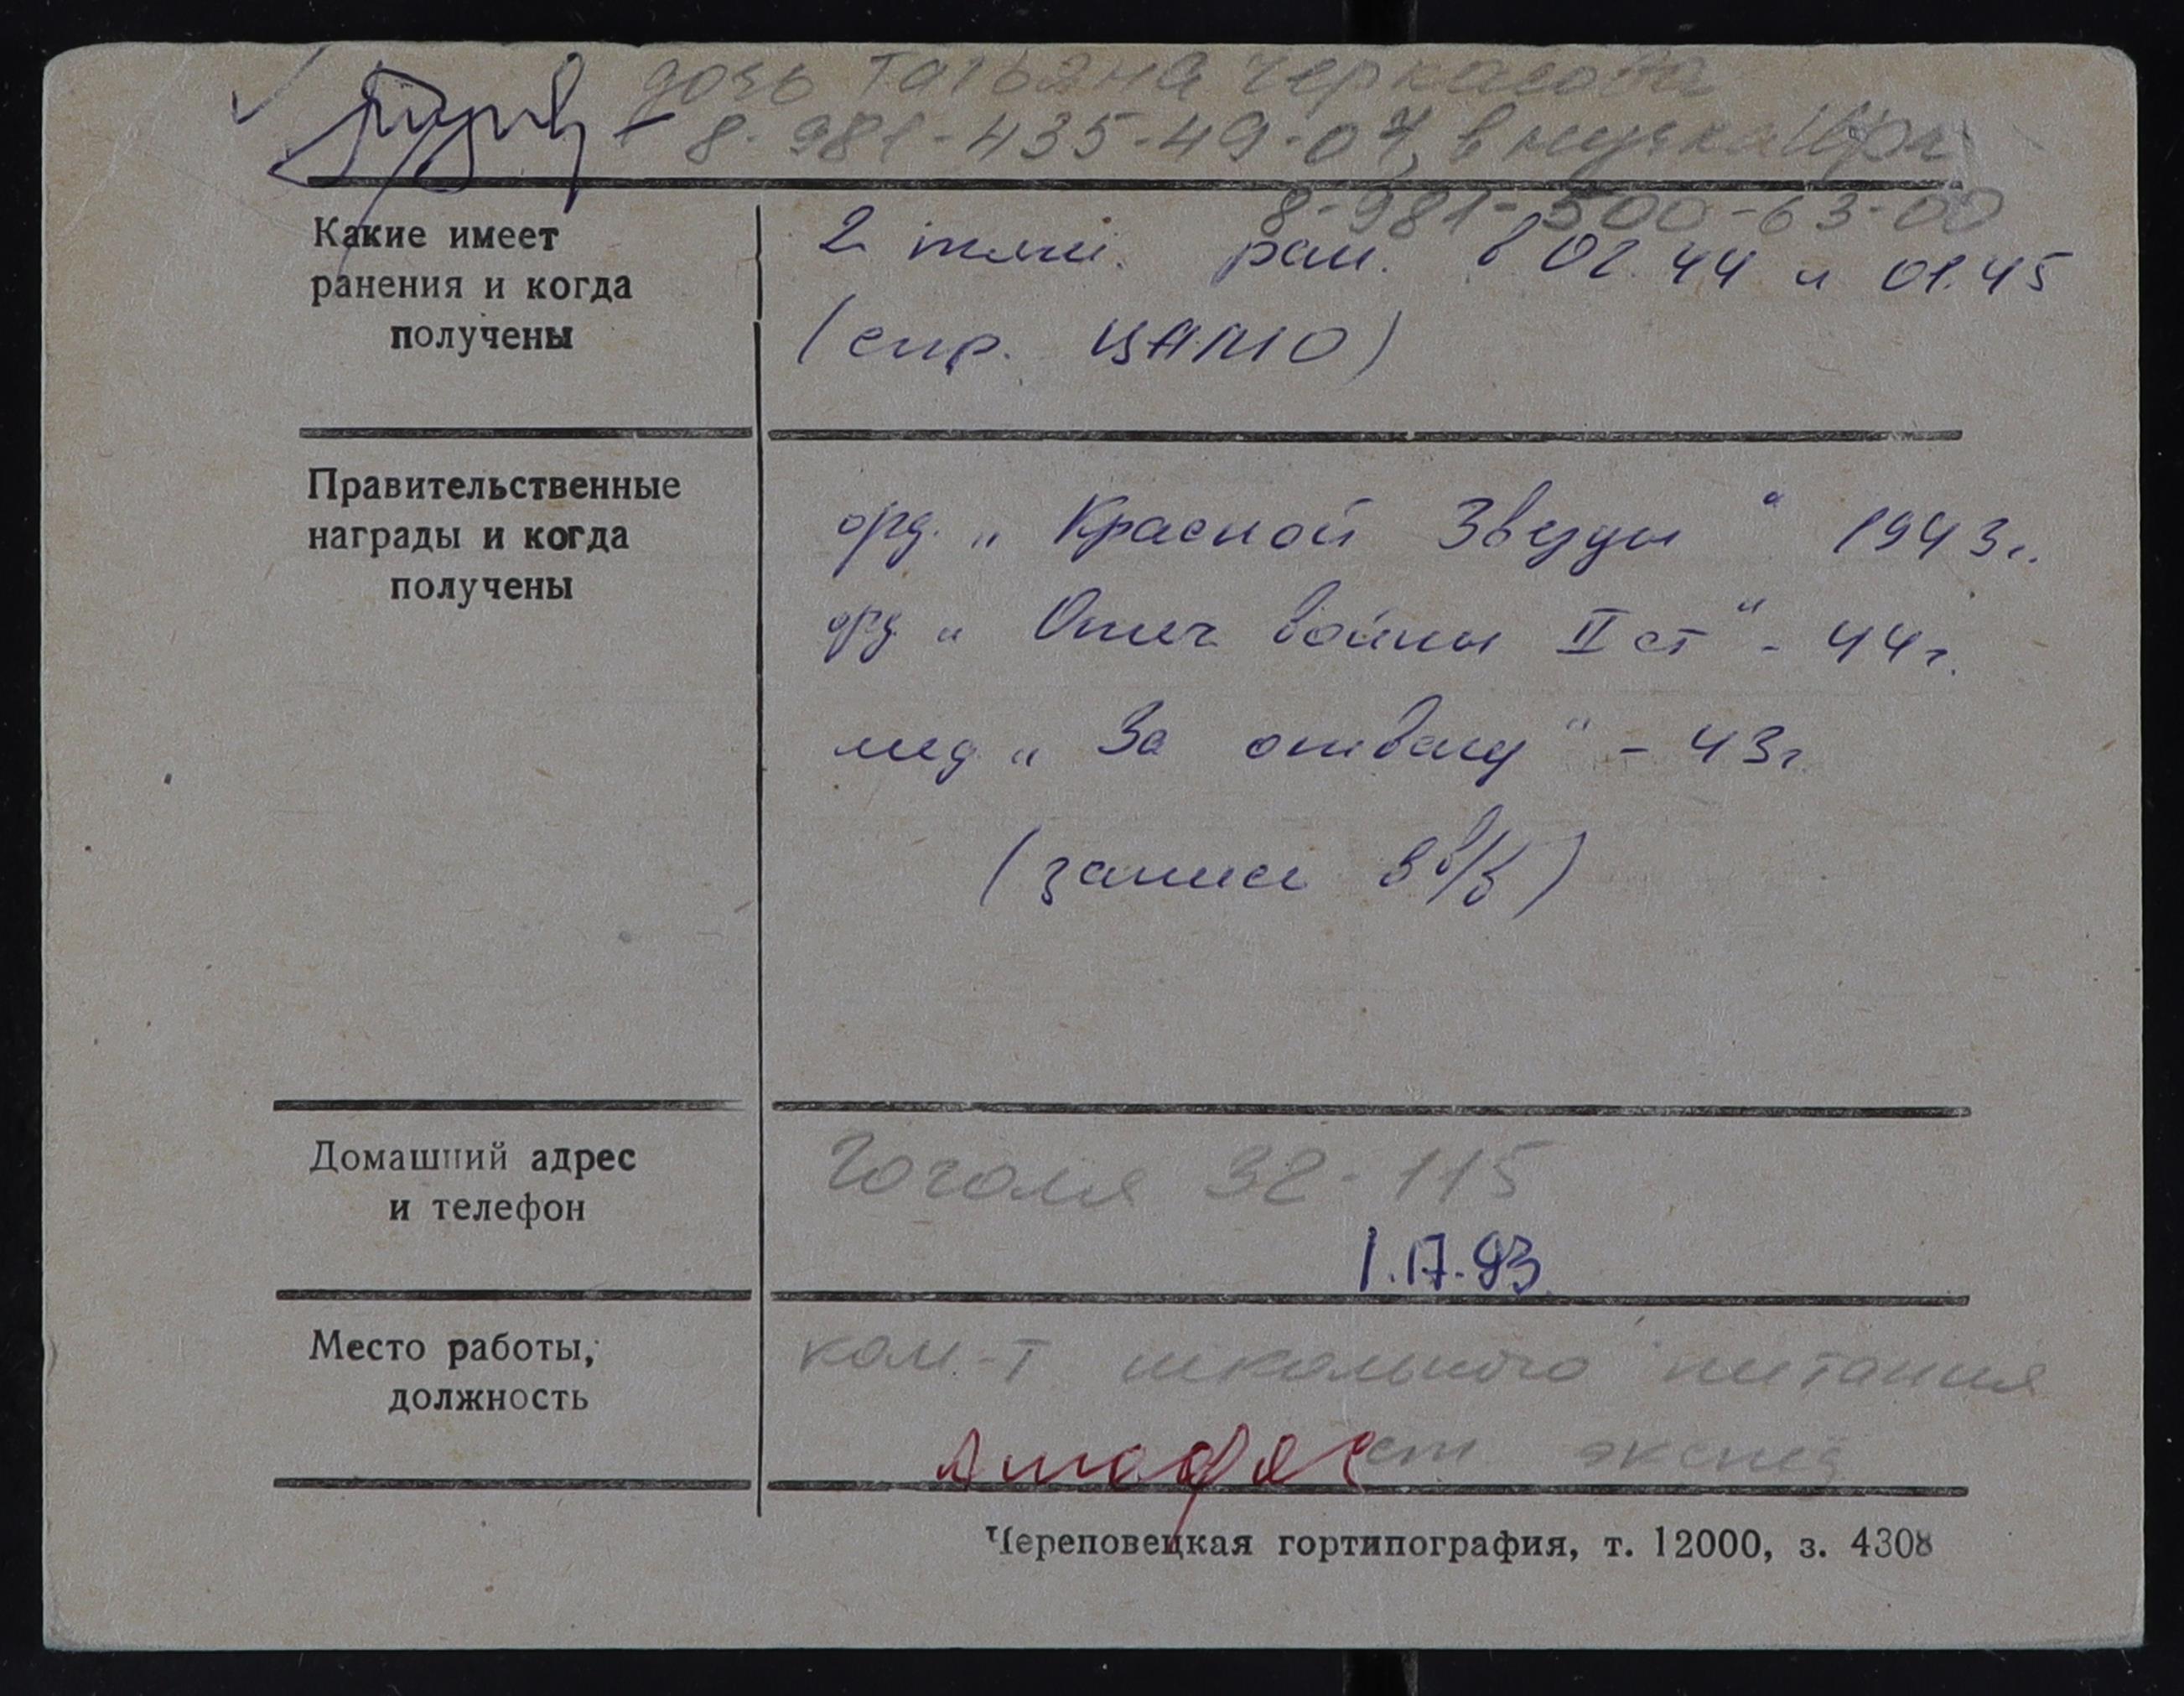 дочь Татьяна Черкасова
8-981-435-49-07, внучка Ира
8-981-500-63-00
Какие имеет
ранения и когда
получены
2 тяж. ран. в 02.44 и 01.45
(спр. ЦАМО)
Правительственные
награды и когда
получены
орд. „Красной Звезды“ 1943г.
орд „Отеч войны II ст“ - 44г.
мед „За отвагу“ - 43г.
(записи в в/б)
Домашний адрес
и телефон
Гоголя 32-115
Место работы,
должность
ком-т школьного питания
ст. экспед
Череповецкая гортипография, т. 12000, з. 4308